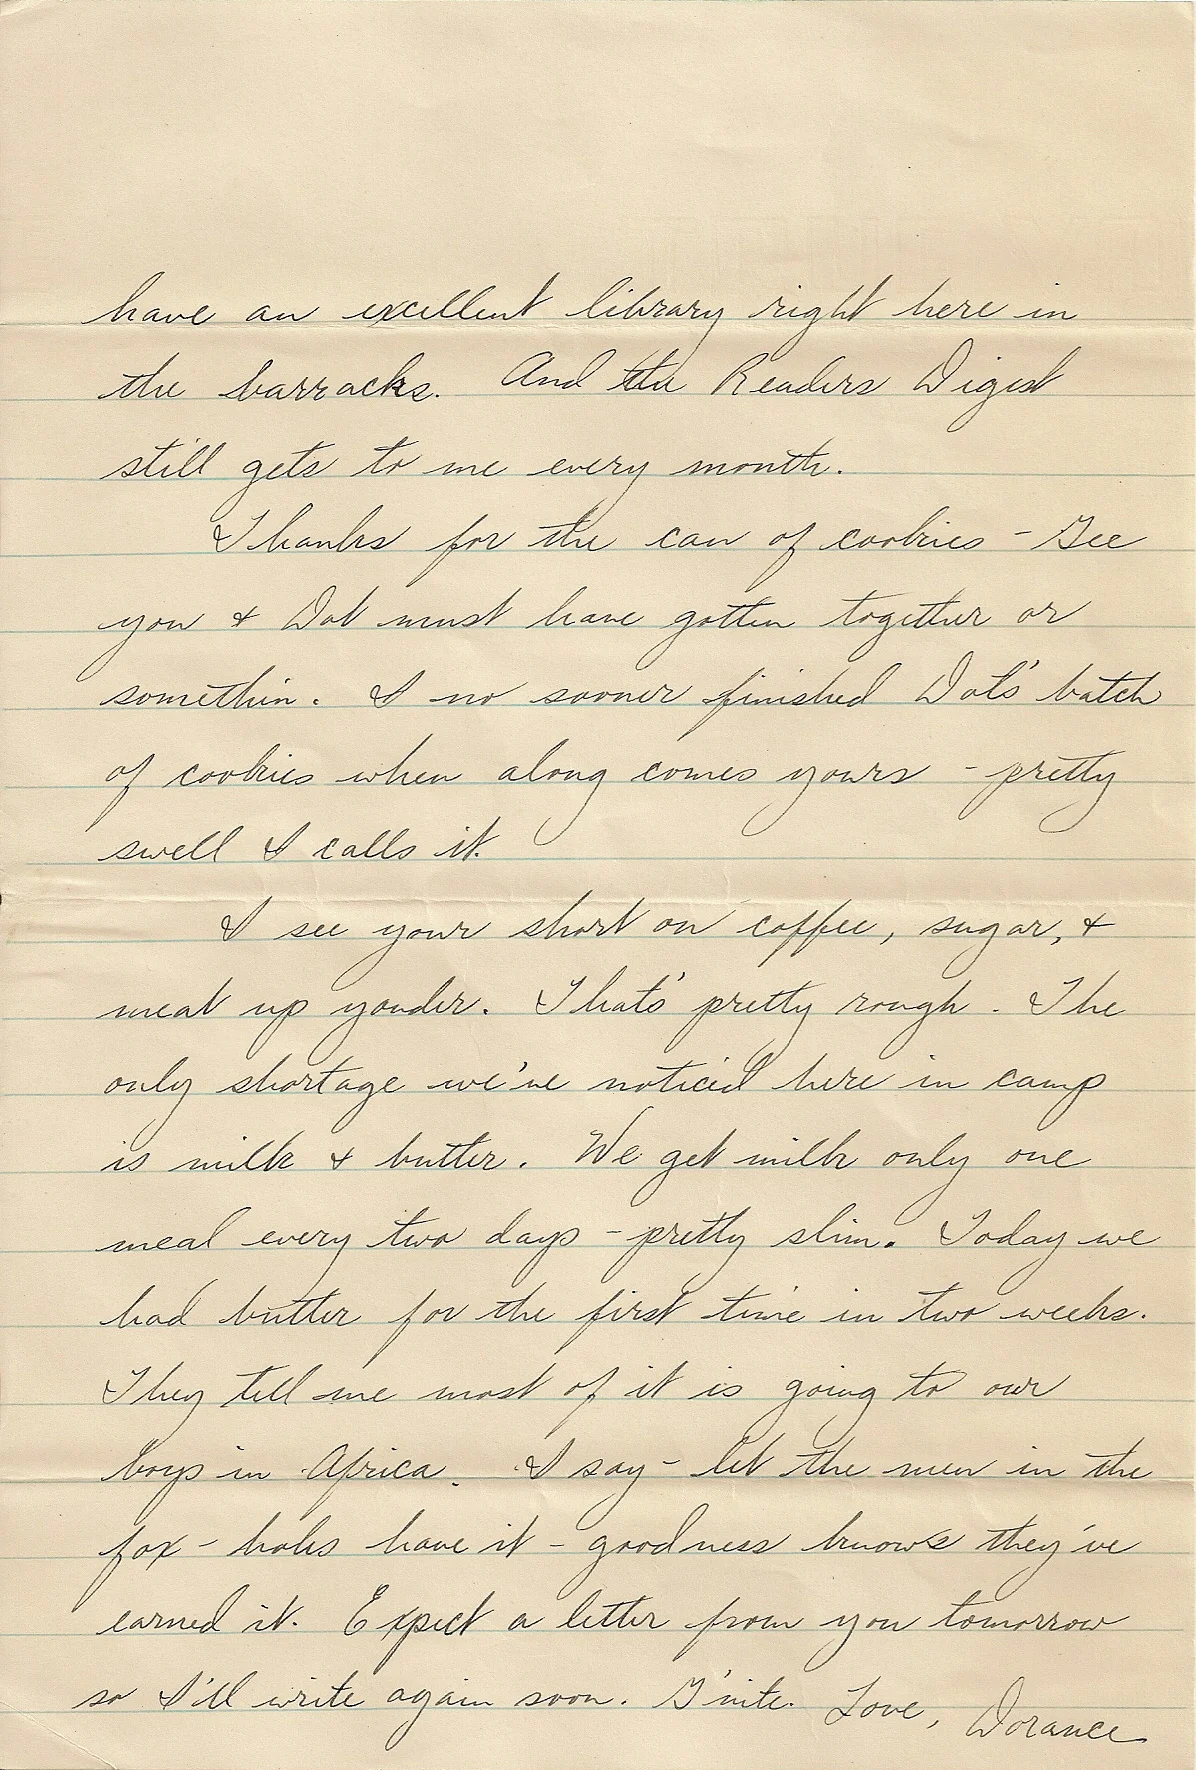 have an excellent library right here in
the barracks. And the Readers Digest
still gets to me every month.
Thanks for the can of cookies - Gee
you & Dot must have gotten together or
somethin. I no sooner finished Dots' batch
of cookies when along comes yours - pretty
swell I calls it.
I see your short on coffee, sugar, &
meat up yonder. Thats' pretty rough. The
only shortage we've noticed here in camp
is milk & butter. We get milk only one
meal every two days - pretty slim. Today we
had butter for the first time in two weeks.
They tell me most of it is going to our
boys in Africa. I say - let the men in the
fox - holes have it - goodness knows they've
earned it. Expect a letter from you tomorrow
so I'll write again soon. G'nite. Love, Dorance